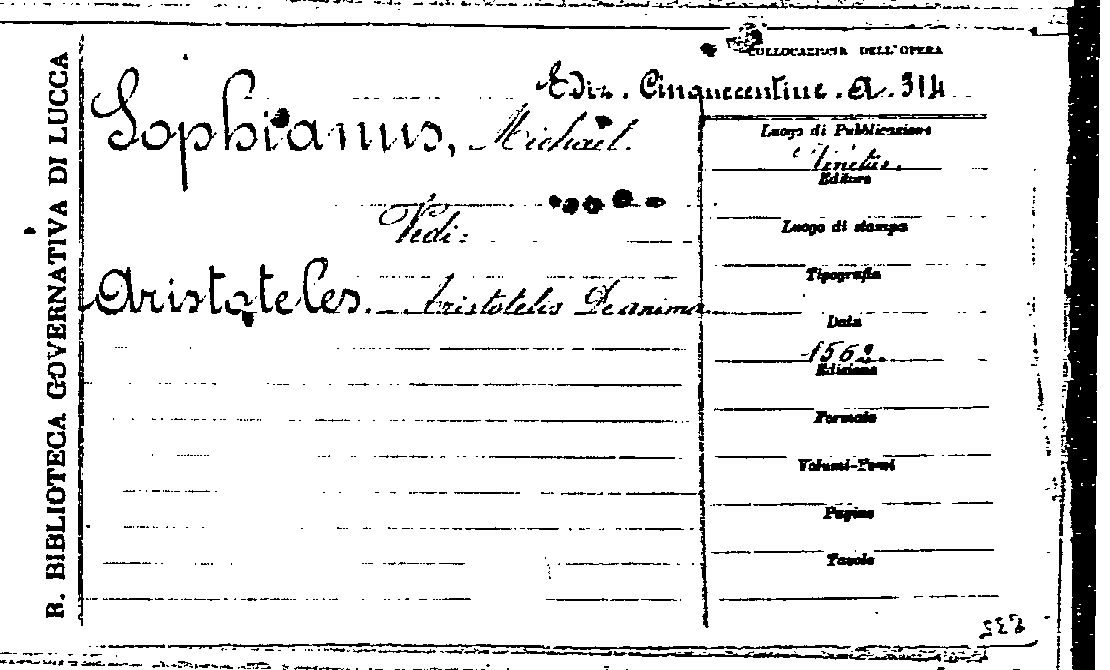 R. BIBLIOTECA GOVERNATIVA DI LUCCA
COLLOCAZIONE DELL'OPERA
Ediz. Cinquecentine. a. 314
Sophianus, Michael.
Vedi:
Aristoteles. Aristotelis De anima
Luogo di Pubblicazione
Venetiis.
Editore
Luogo di stampa
Tipografia
Data
1562.
Edizione
Formato
Volumi-Tomi
Pagine
Tavole